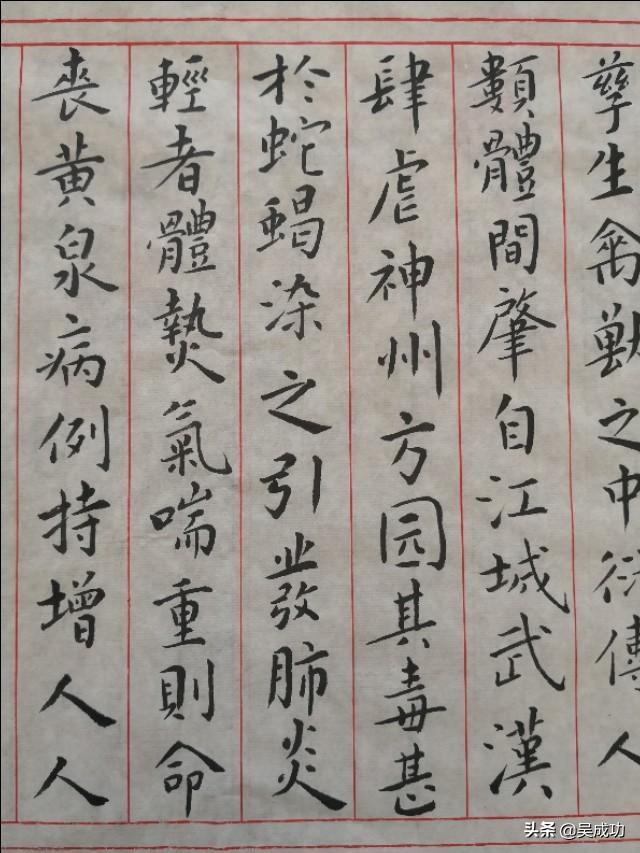 孳生禽獸之中衍傳人
類體間肇自江城武漢
肆虐神州方园其毒甚
於蛇蝎染之引發肺炎
輕者體熱氣喘重則命
喪黄泉病例持增人人
头条 @吴成功